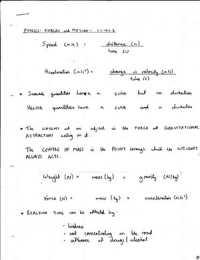 PHYSICS: FORCES and MOTION
Speed (m/s) = distance (m)
time (s)
Acceleration (m/s²) = change in velocity (m/s)
time (s)
Scalar quantities have a size but no direction
Vector quantities have a size and a direction
The WEIGHT of an object is the FORCE of GRAVITATIONAL
ATTRACTION acting on it.
The CENTRE OF MASS is the POINT through which the WEIGHT
ALWAYS ACTS.
Weight (N) = mass (kg) × gravity (N/kg)
Force (N) = mass (kg) × acceleration (m/s²)
REACTION TIME can be affected by:
- tiredness
- not concentrating on the road
- influence of drugs / alcohol